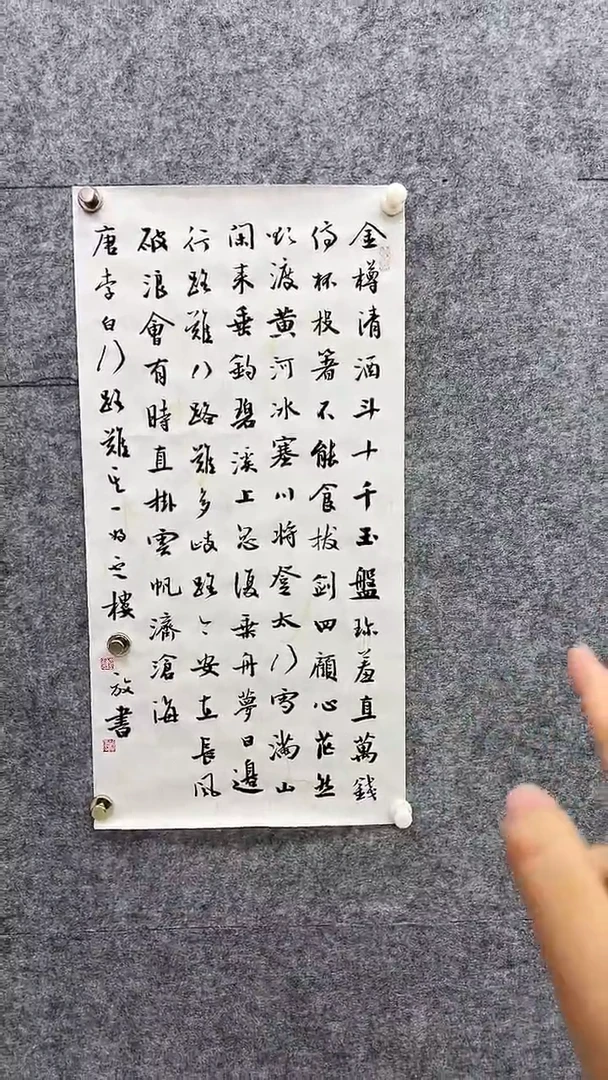 金樽清酒斗十千玉盤珎羞直萬錢
停杯投箸不能食拔剑四顧心茫然
欲渡黄河冰塞川将登太行雪满山
闲来垂釣碧溪上忽復乘舟夢日邊
行路難行路難多歧路今安在長風
破浪會有時直掛雲帆濟滄海
唐李白行路難其一樓放書